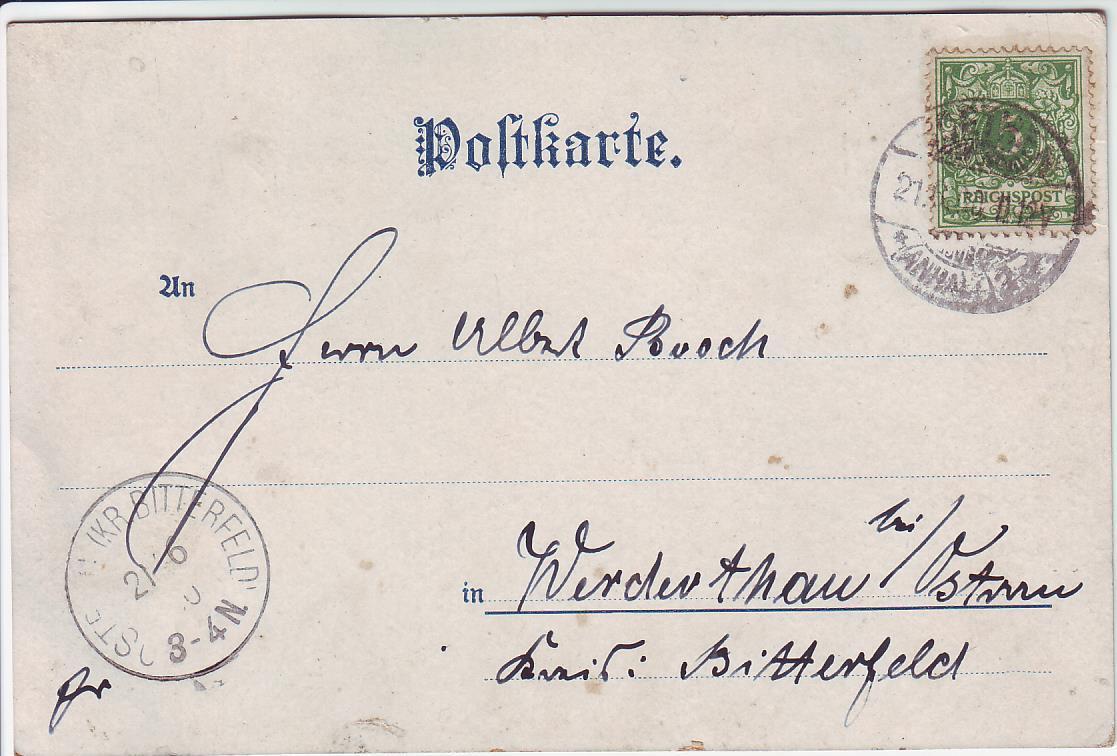 Postkarte.
5
REICHSPOST
(ANHALT)
An
Herrn Albert Rosch
in Werderthau bei / Ostrau
Kreis: Bitterfeld
(KR. BITTERFELD)
3-4N
fr